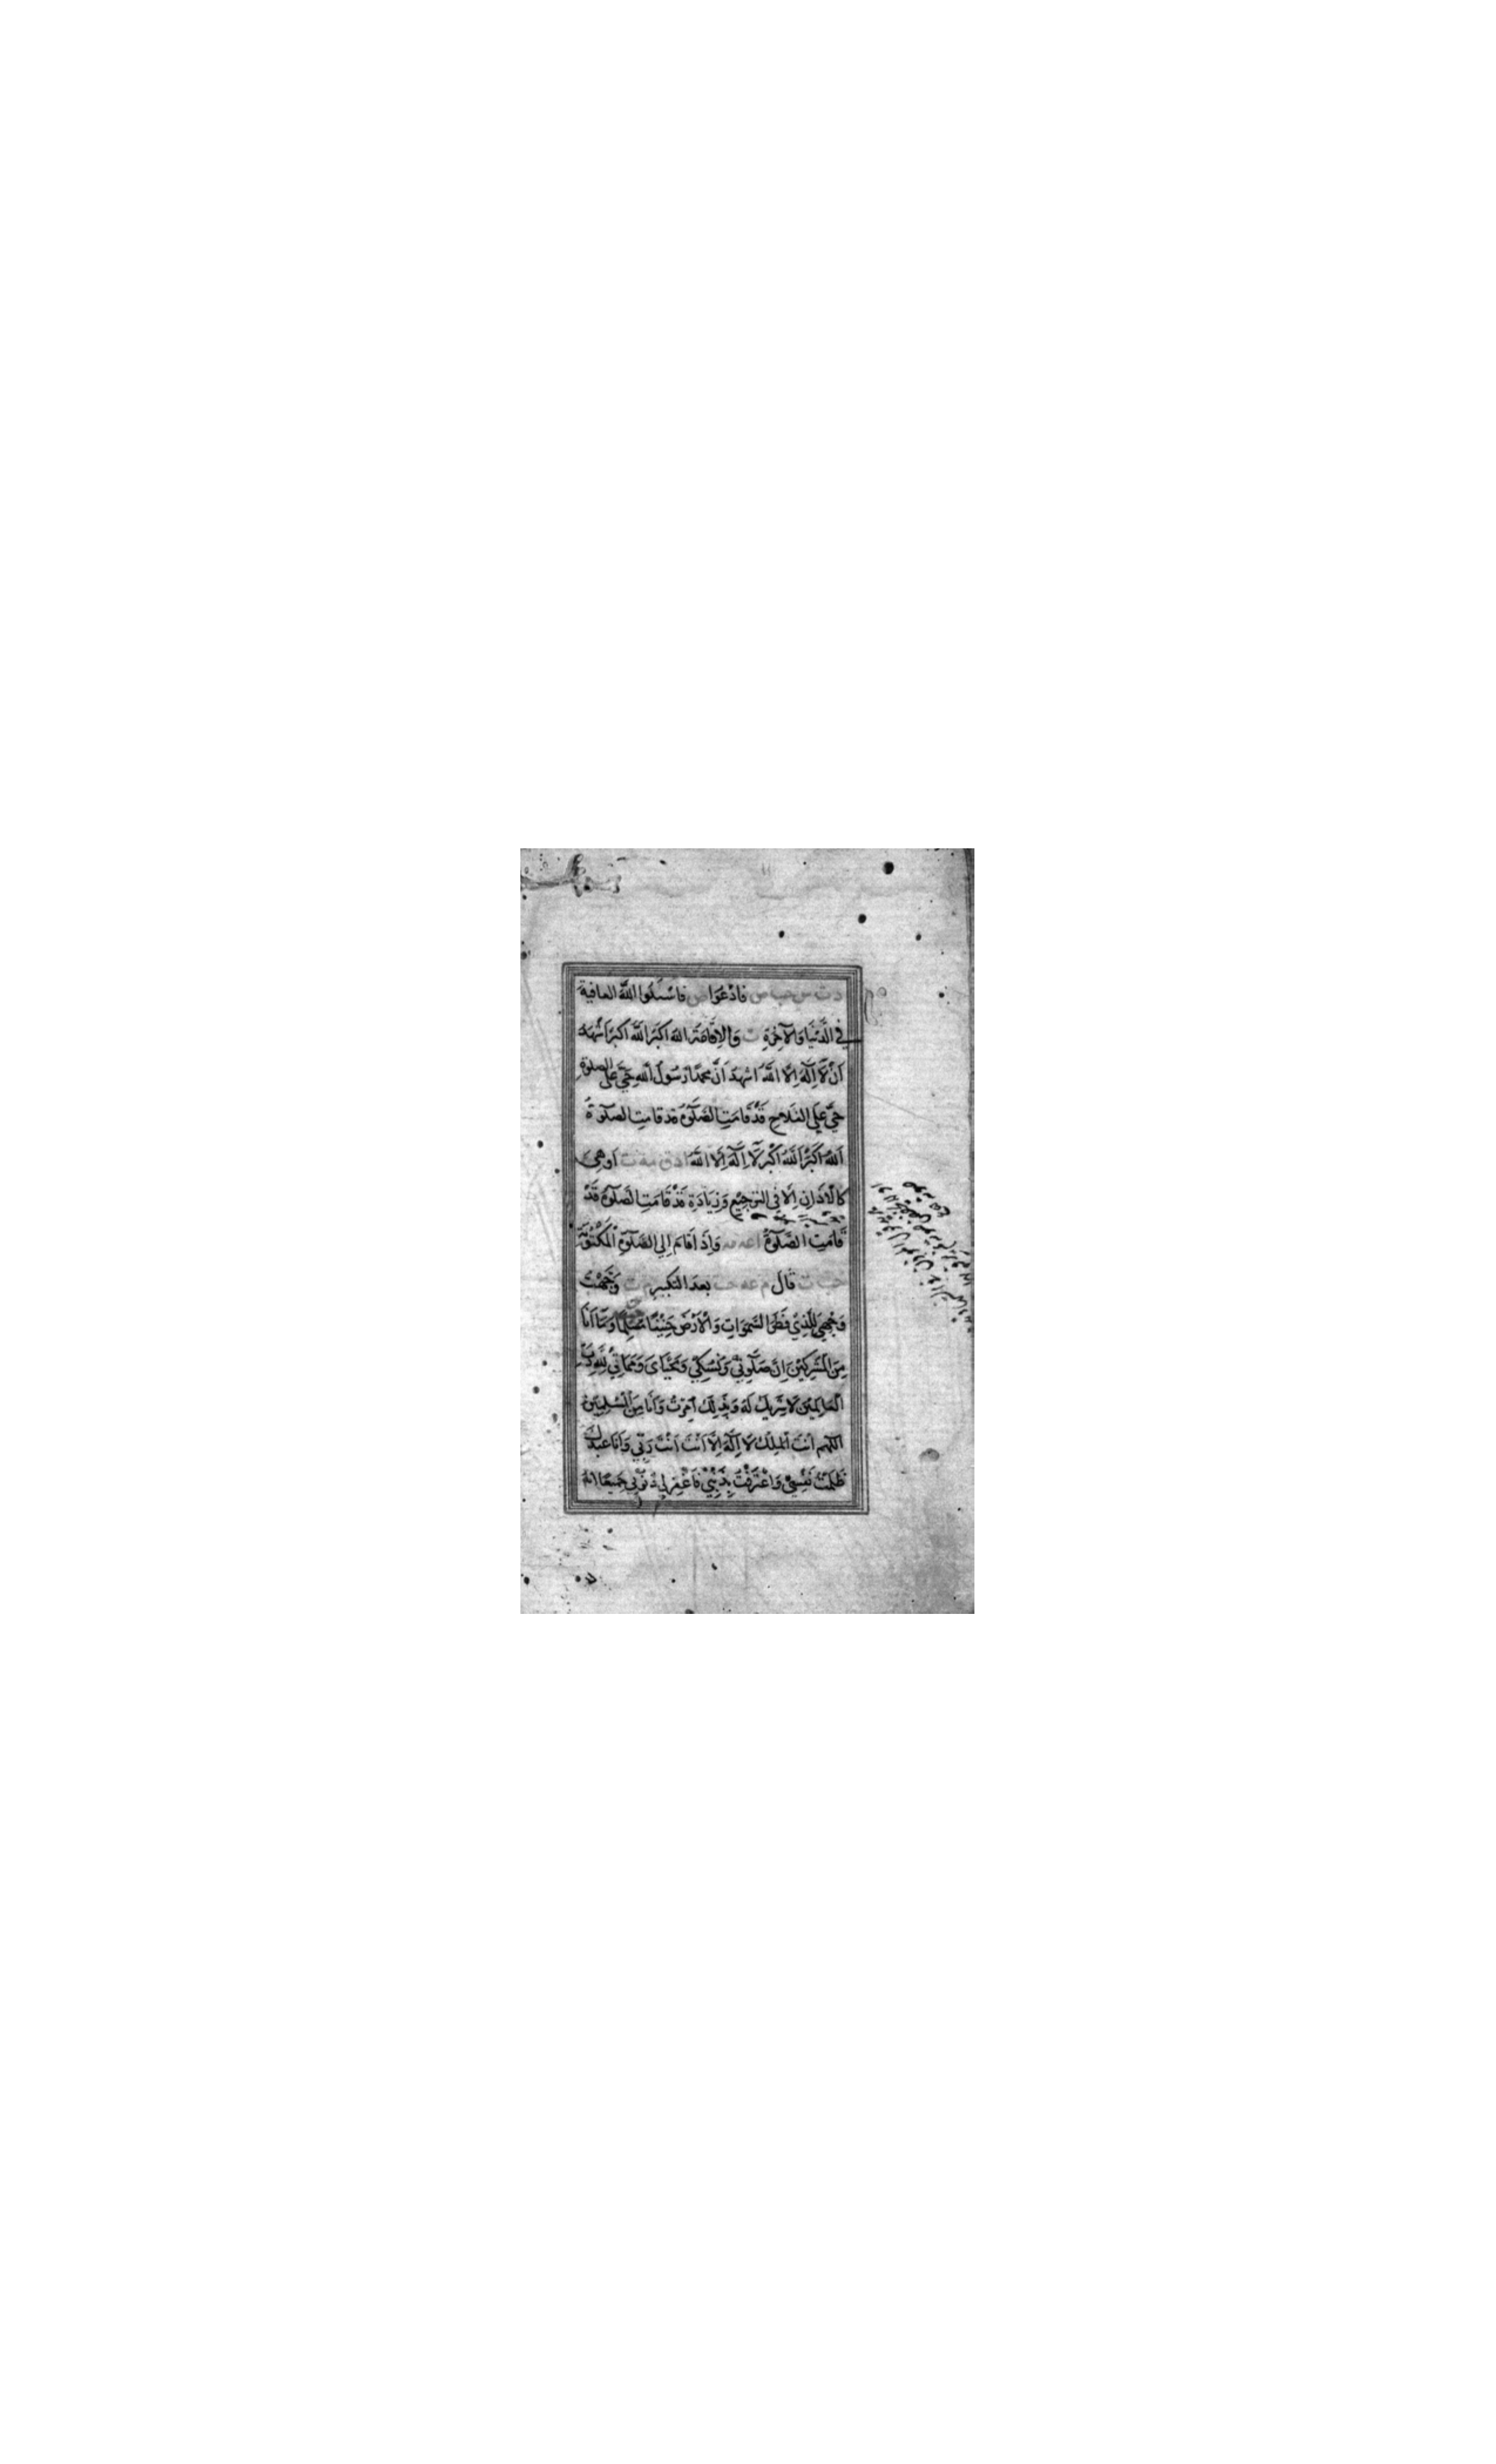 د ت س حب ص فَادْعُوا ص فَاسْئَلُوا اللّٰهَ العافية
فِي الدُّنْيَا وَالْآخِرَةِ ت وَالْاِقَامَةِ اللّٰه اكبَر اللّٰه اكبر اَشْهَدُ
اَنْ لَّا اِلٰهَ اِلَّا اللّٰهُ اشهد اَنَّ محمدًا رَسُولُ اللّٰهِ حَيَّ على الصلوة
حَيَّ عَلَى الفَلَاحِ قَدْ قَامَتِ الصَّلٰوةُ قد قامتِ الصلوةُ
اَللّٰهُ اَكْبَرُ اَللّٰهُ اَكْبَر لَا اِلٰهَ اِلَّا اللّٰهُ ا د ق مه ت اَوْهِيَ
كَالْاَذَانِ اِلَّا فِي الترجِيْعِ وَزِيَادَةِ قَدْ قَامَتِ الصَّلٰوةُ قَدْ
قَامَتِ الصَّلٰوةُ ا عه مه وَاِذَا قَامَ اِلَى الصَّلٰوةِ الْمَكْتُوْبَةِ
حب ت قَالَ م عه حب بعدَ التكبير م ت وَجَّهْتُ
وَجْهِيَ لِلَّذِيْ فَطَرَ السَّمٰوَاتِ وَالْاَرْضَ حَنِيْفًا مُّسْلِمًا وَمَا اَنَا
مِنَ الْمُشْرِكِيْنَ اِنَّ صَلٰوتِيْ وَنُسُكِيْ وَمَحْيَايَ وَمَمَاتِيْ لِلّٰهِ رَبِّ
الْعَالَمِيْنَ لَا شَرِيكَ لَهُ وَبِذٰلِكَ اُمِرْتُ وَاَنَا مِنَ الْمُسْلِمِيْنَ
اللّٰهم اَنْتَ الْمَلِكُ لَا اِلٰهَ اِلَّا اَنْتَ اَنْتَ رَبِّي وَاَنَا عبدك
ظَلَمْتُ نَفْسِيْ وَاعْتَرَفْتُ بِذَنْبِيْ فَاغْفِرْ لِي ذُنُوْبِي جَمِيْعًا انه